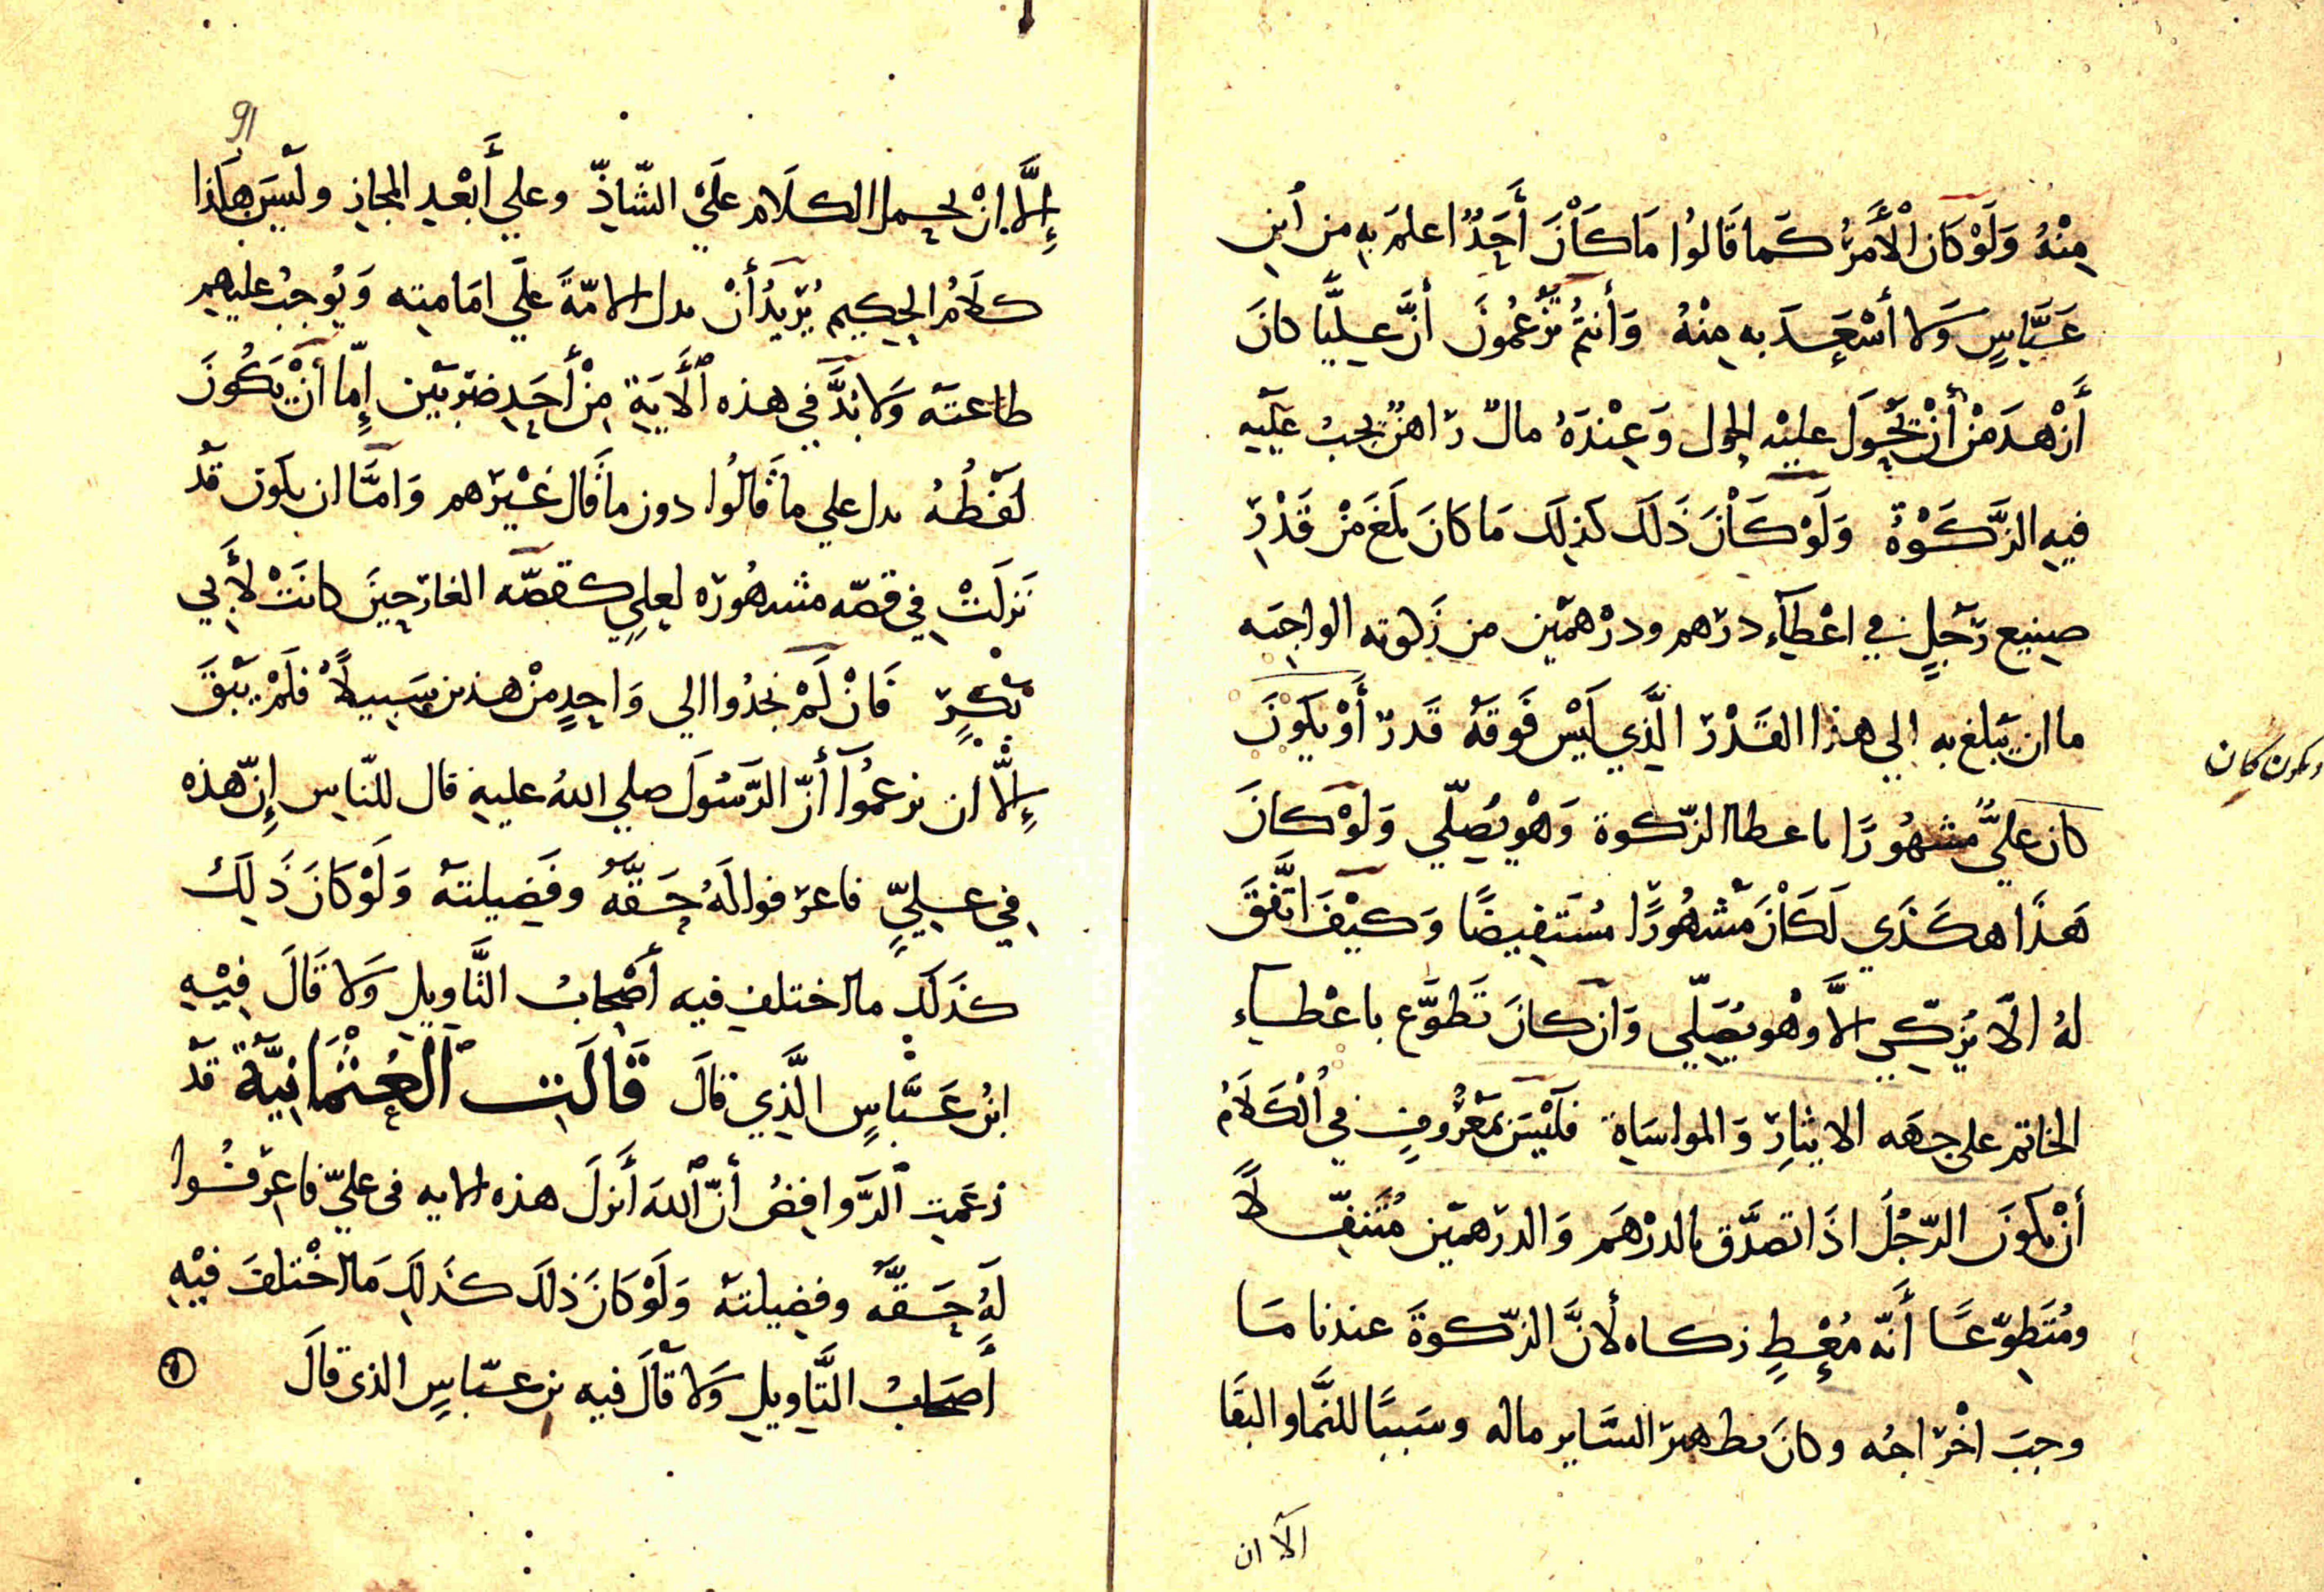 مِنْهُ وَلَوْ كَانَ الْأَمْرُ كَما قَالوُا مَا كَاْنَ أَحَدٌ اعلمَ بِهِ من اُبنِ
عَبَّاسٍ وَلا أسْعَدَ به مِنْهُ وَأنتُمْ تَزْعُمُونَ أنَّ عَلِيًّا كانَ
أَزْهدَ مَنْ أنْ يَحُولَ عليْه الحول وَعِنْدَهُ مالٌ رَاهنٌ يجبُ عليَه
فيهِ الزَّكَوْةُ وَلَوْ كَاْنَ ذَلكَ كَذلِكَ مَا كانَ بَلَغَ مَنْ قَدْرِ
صنِيع رَجَلٍ في اعْطَآءِ درْهم ودرْهمَين من زَكوته الواجبَه
ما ان يَبلغ به الي هذا القَدْرَ الَّذي لَيْس فَوقَهُ قَدرٌ أوْ يكوُنَ
ويكون كان
كان عليٌّ مَشهُورًا باعطا الزّكوة وَهْو يُصَلّي وَلَوْ كانَ
هَذَا هكَذَي لَكَاْنَ مَشْهُورًا مُسْتَفِيضًا وَكَيْفَ اتَّفَقَ
لهُ الّا يُزكِّي الاَّ وْهو يُصَلّي وَانْ كانَ تَطوَّع باعْطاءِ
الخاتم على جهَه الايثارِ وَالمواسَاةِ فَلَيْسَ بَمعْرُوفٍ في اْلكَلَامُ
أنْ يكوُنَ الرّجُلَ اذَا تصدَّق بالدرْهَمِ وَالدرَهمَين مُتَنفِّلًا
ومُتَطوّعَا أَنّه مُعْطٍ زكاه لأنَّ الزّكوةَ عندنا مَا
وجبَ اخْرَاجُه وكانَ مطهّرَا لسَّاير ماله وسَببًا للنَّما والبقَا
الا ان
91
إِلَّا انْ يحمل الكلَام علَيْ الشّاذّ وعلي أَبْعد المجاز ولَيسَ هاَذا
كلَامُ الحكِيم يُرِيدُ أنْ يدل الامّةَ علَي امَامته وَيُوجبُ عليهم
طاعتَه وَلا بُدَّ في هذه اَلْأَيَةِ مِنْ أحَدِ ضرَبيَن إِمَّا أنْ يَكُونَ
لَفْظُهُ يدل علي ما قَالوُا دون ما قَال غَيْرهم وَامَّا ان يكوَن قَد
نَزلَتْ في قصّه مشهُورَه لعلي كقصّه الغارَ حِينَ كانَتْ لأَبي
بَكْرٍ فَانْ لَمْ يَجدُوا الي وَاحِدٍ منْ هذين سَبيلًا فلَمْ يَبْقَ
إِلاَّ ان يزعمُوَا أنَّ الرَّسُولَ صلي اللهُ عليهِ قال للنّاسِ إِنّ هذه
في علِيٍّ فاعرَفوا لَهُ حَقَّهُ وفَضِيلتهَ وَلَوْ كَانَ ذَلِكَ
كذَلَكَ ما اختلف فيه أصْحابُ التَّاويل وَلا قَالَ فِيْهِ
ابنُ عَبَّاسٍ الَّذِي قالَ قَالَتِ اَلْعُثْمَانِيَّةُ قَد
زعَمتِ اَلرَّوافِضُ أنّ اَللهَ أَنزلَ هذه الايه فى عليّ فاعرَفُوا
لَهُ حَقَّهُ وفضِيلتهَ وَلَوْ كَانَ ذلكَ كذَلكَ مَا اخْتلَفَ فيْهِ
أَصحَابُ التَّاويل وَلا قَالَ فيه بن عبّاسٍ الذى قالَ